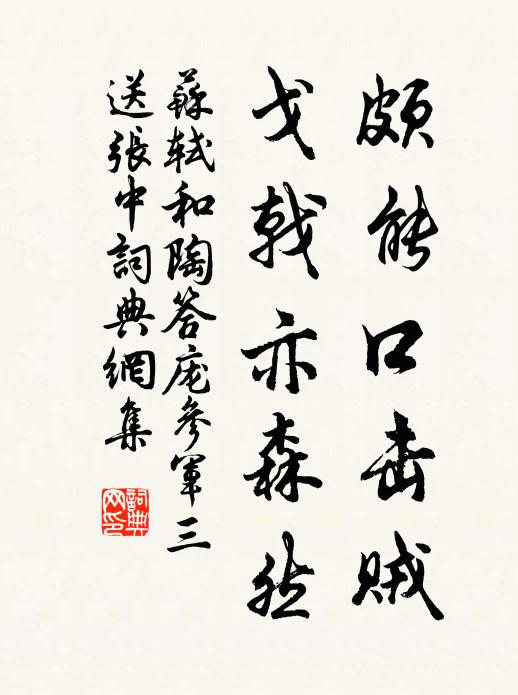 頗能口击賊
戈戟亦森然
蘇軾和陶答庞參軍三
送張中詞典網集
詞典
网印